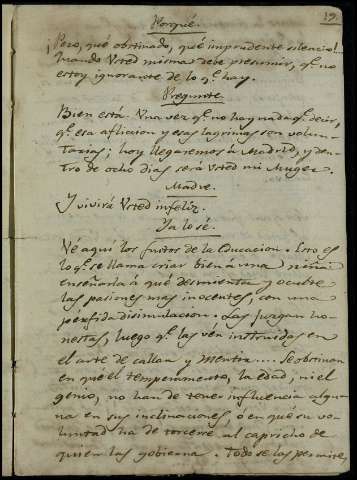 19.
Porqué.
¡Pero, qué obstinado, qué imprudente silencio!...
Quando Usted misma debe presumir, qᵉ no
estoy ignorante de lo qᵉ hay.
Pregunte.
Bien está. Una vez qᵉ no hay nada qᵉ decir,
qᵉ esa afliccion y esas lagrimas son volun-
tarias; hoy llegaremos á Madrid, y den-
tro de ocho dias será Usted mi Muger.
Madre.
Y vivirá Usted infeliz.
Ya lo sé.
Vé aqui los frutos de la Educacion. Esto es
lo qᵉ se llama criar bien á una niña:
enseñarla á que desmienta y oculte
las pasiones mas inocentes, con una
pérfida disimulacion. Las juzgan ho-
nestas, luego qᵉ las vén instruidas en
el arte de callar y mentir.... Se obstinan
en que el temperamento, la edad, ni el
genio, no han de tener influencia algu-
na en sus inclinaciones, ó en que su vo-
luntad ha de torcerse al capricho de
quien las gobierna. Todo se las permite,